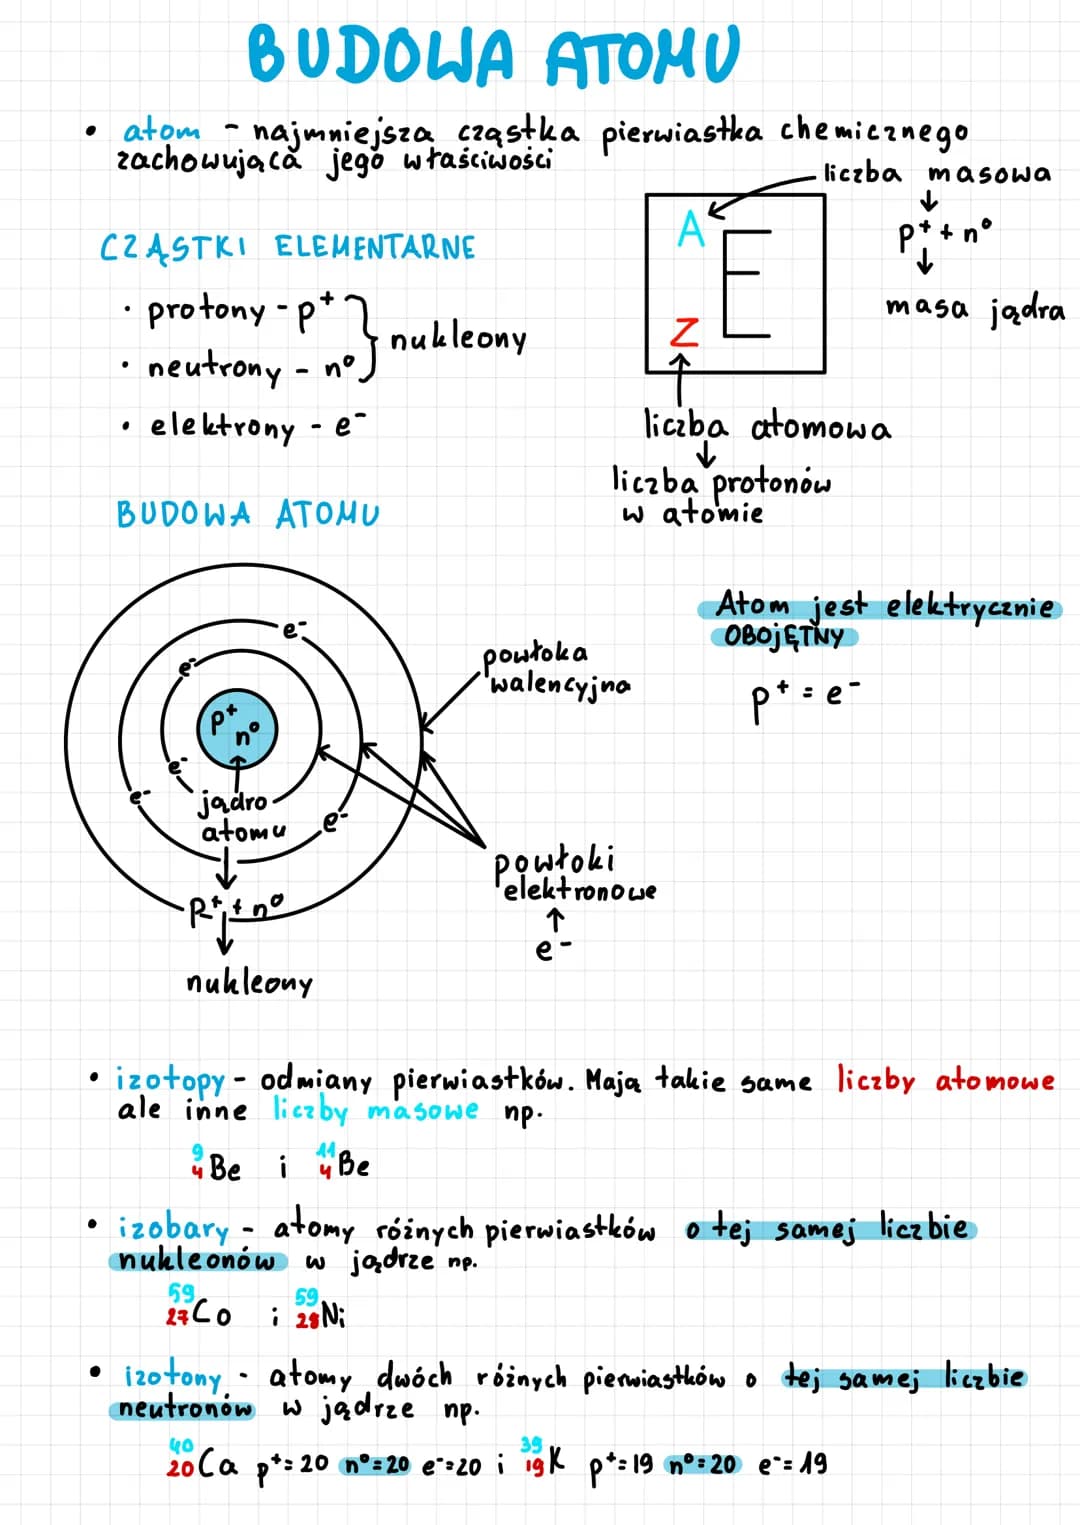 BUDOWA ATOMU
• atom - najmniejsza cząstka pierwiastka chemicznego
zachowująca jego właściwości
liczba masowa
↓
p⁺ + n⁰
↓
masa jądra
A
E
Z
liczba atomowa
↓
liczba protonów
w atomie
CZĄSTKI ELEMENTARNE
· protony - p⁺
· neutrony - n⁰
} nukleony
· elektrony - e⁻
BUDOWA ATOMU
e⁻
e⁻
p⁺
n⁰
e⁻
e⁻
e⁻
jądro
atomu
↓
p⁺ + n⁰
↓
nukleony
powłoka
walencyjna
powłoki
elektronowe
↑
e⁻
Atom jest elektrycznie
OBOJĘTNY
p⁺ = e⁻
• izotopy - odmiany pierwiastków. Mają takie same liczby atomowe
ale inne liczby masowe np.
⁹₄Be i ¹¹₄Be
• izobary - atomy różnych pierwiastków o tej samej liczbie
nukleonów w jądrze np.
⁵⁹₂₇Co i ⁵⁹₂₈Ni
• izotony - atomy dwóch różnych pierwiastków o tej samej liczbie
neutronów w jądrze np.
⁴⁰₂₀Ca p⁺=20 n⁰=20 e⁻=20 i ³⁹₁₉K p⁺=19 n⁰=20 e⁻=19